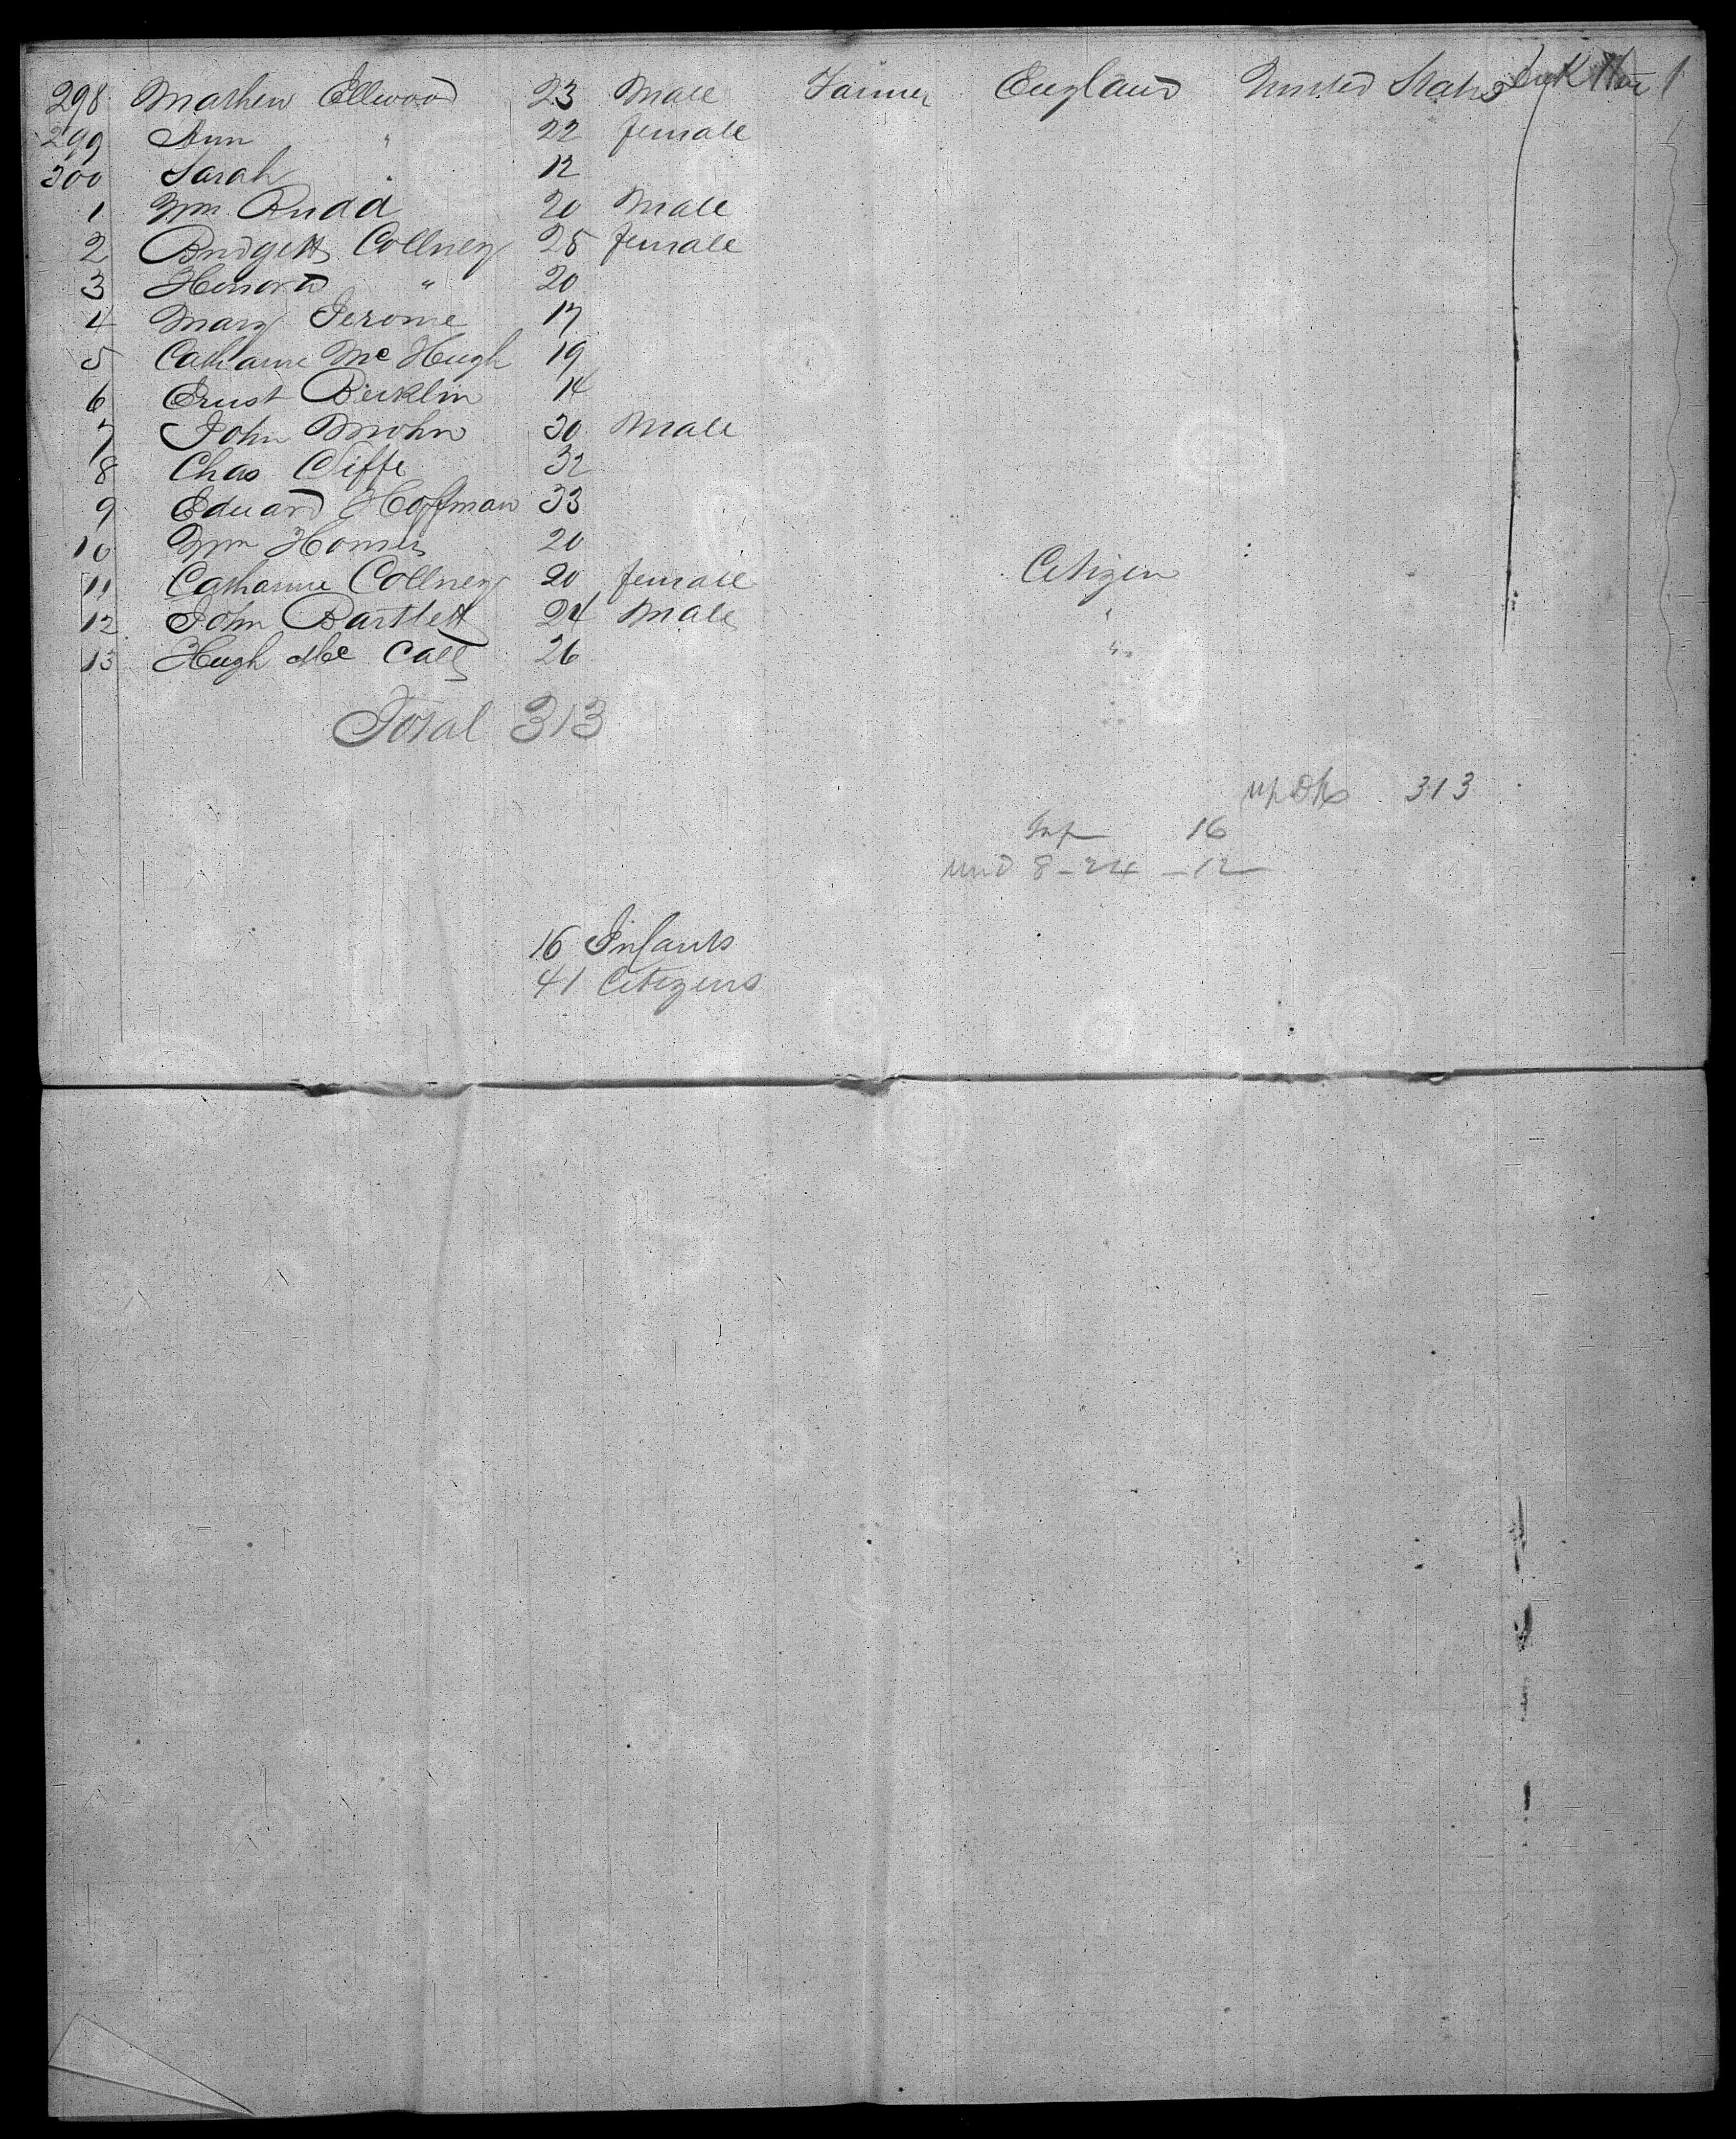 298 Mathew Ellwood 23 Male Farmer England United States
299 Ann " 22 female
300 Sarah " 12
1 Wm Rudd 20 Male
2 Bridgett Collney 25 female
3 Honora " 20
4 Mary Jerome 17
5 Catharine Mc Hugh 19
6 Ernst Bicklin 14
7 John Mohn 30 Male
8 Chas 32
9 Eduard Hoffman 33
10 Wm 20
11 Catharine Collney 20 female Citizen
12 John Bartlett 24 Male "
13 Hugh Mc Call 26 "
Total 313
313
Inf 16
und 8 - 24 - 12
16 Infants
41 Citizens